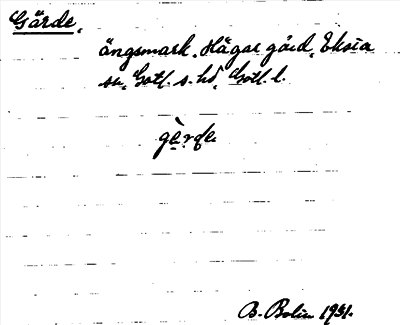 Gärde,
ängsmark. Hägar gård, Eksta
sn, Gotl. s. hd, Gotl. l.
gè̱rde
B. Bolin 1931.